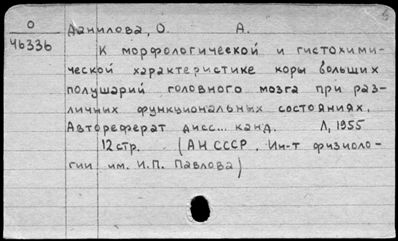 О
46336
Данилова, О. А.
К морфологической и гистохими-
ческой характеристике коры больших
полушарий головного мозга при раз-
личных функциональных состояниях.
Автореферат дисс... канд. Л, 1955
12 стр. (АН СССР. Ин-т физиоло-
гии им. И.П. Павлова)